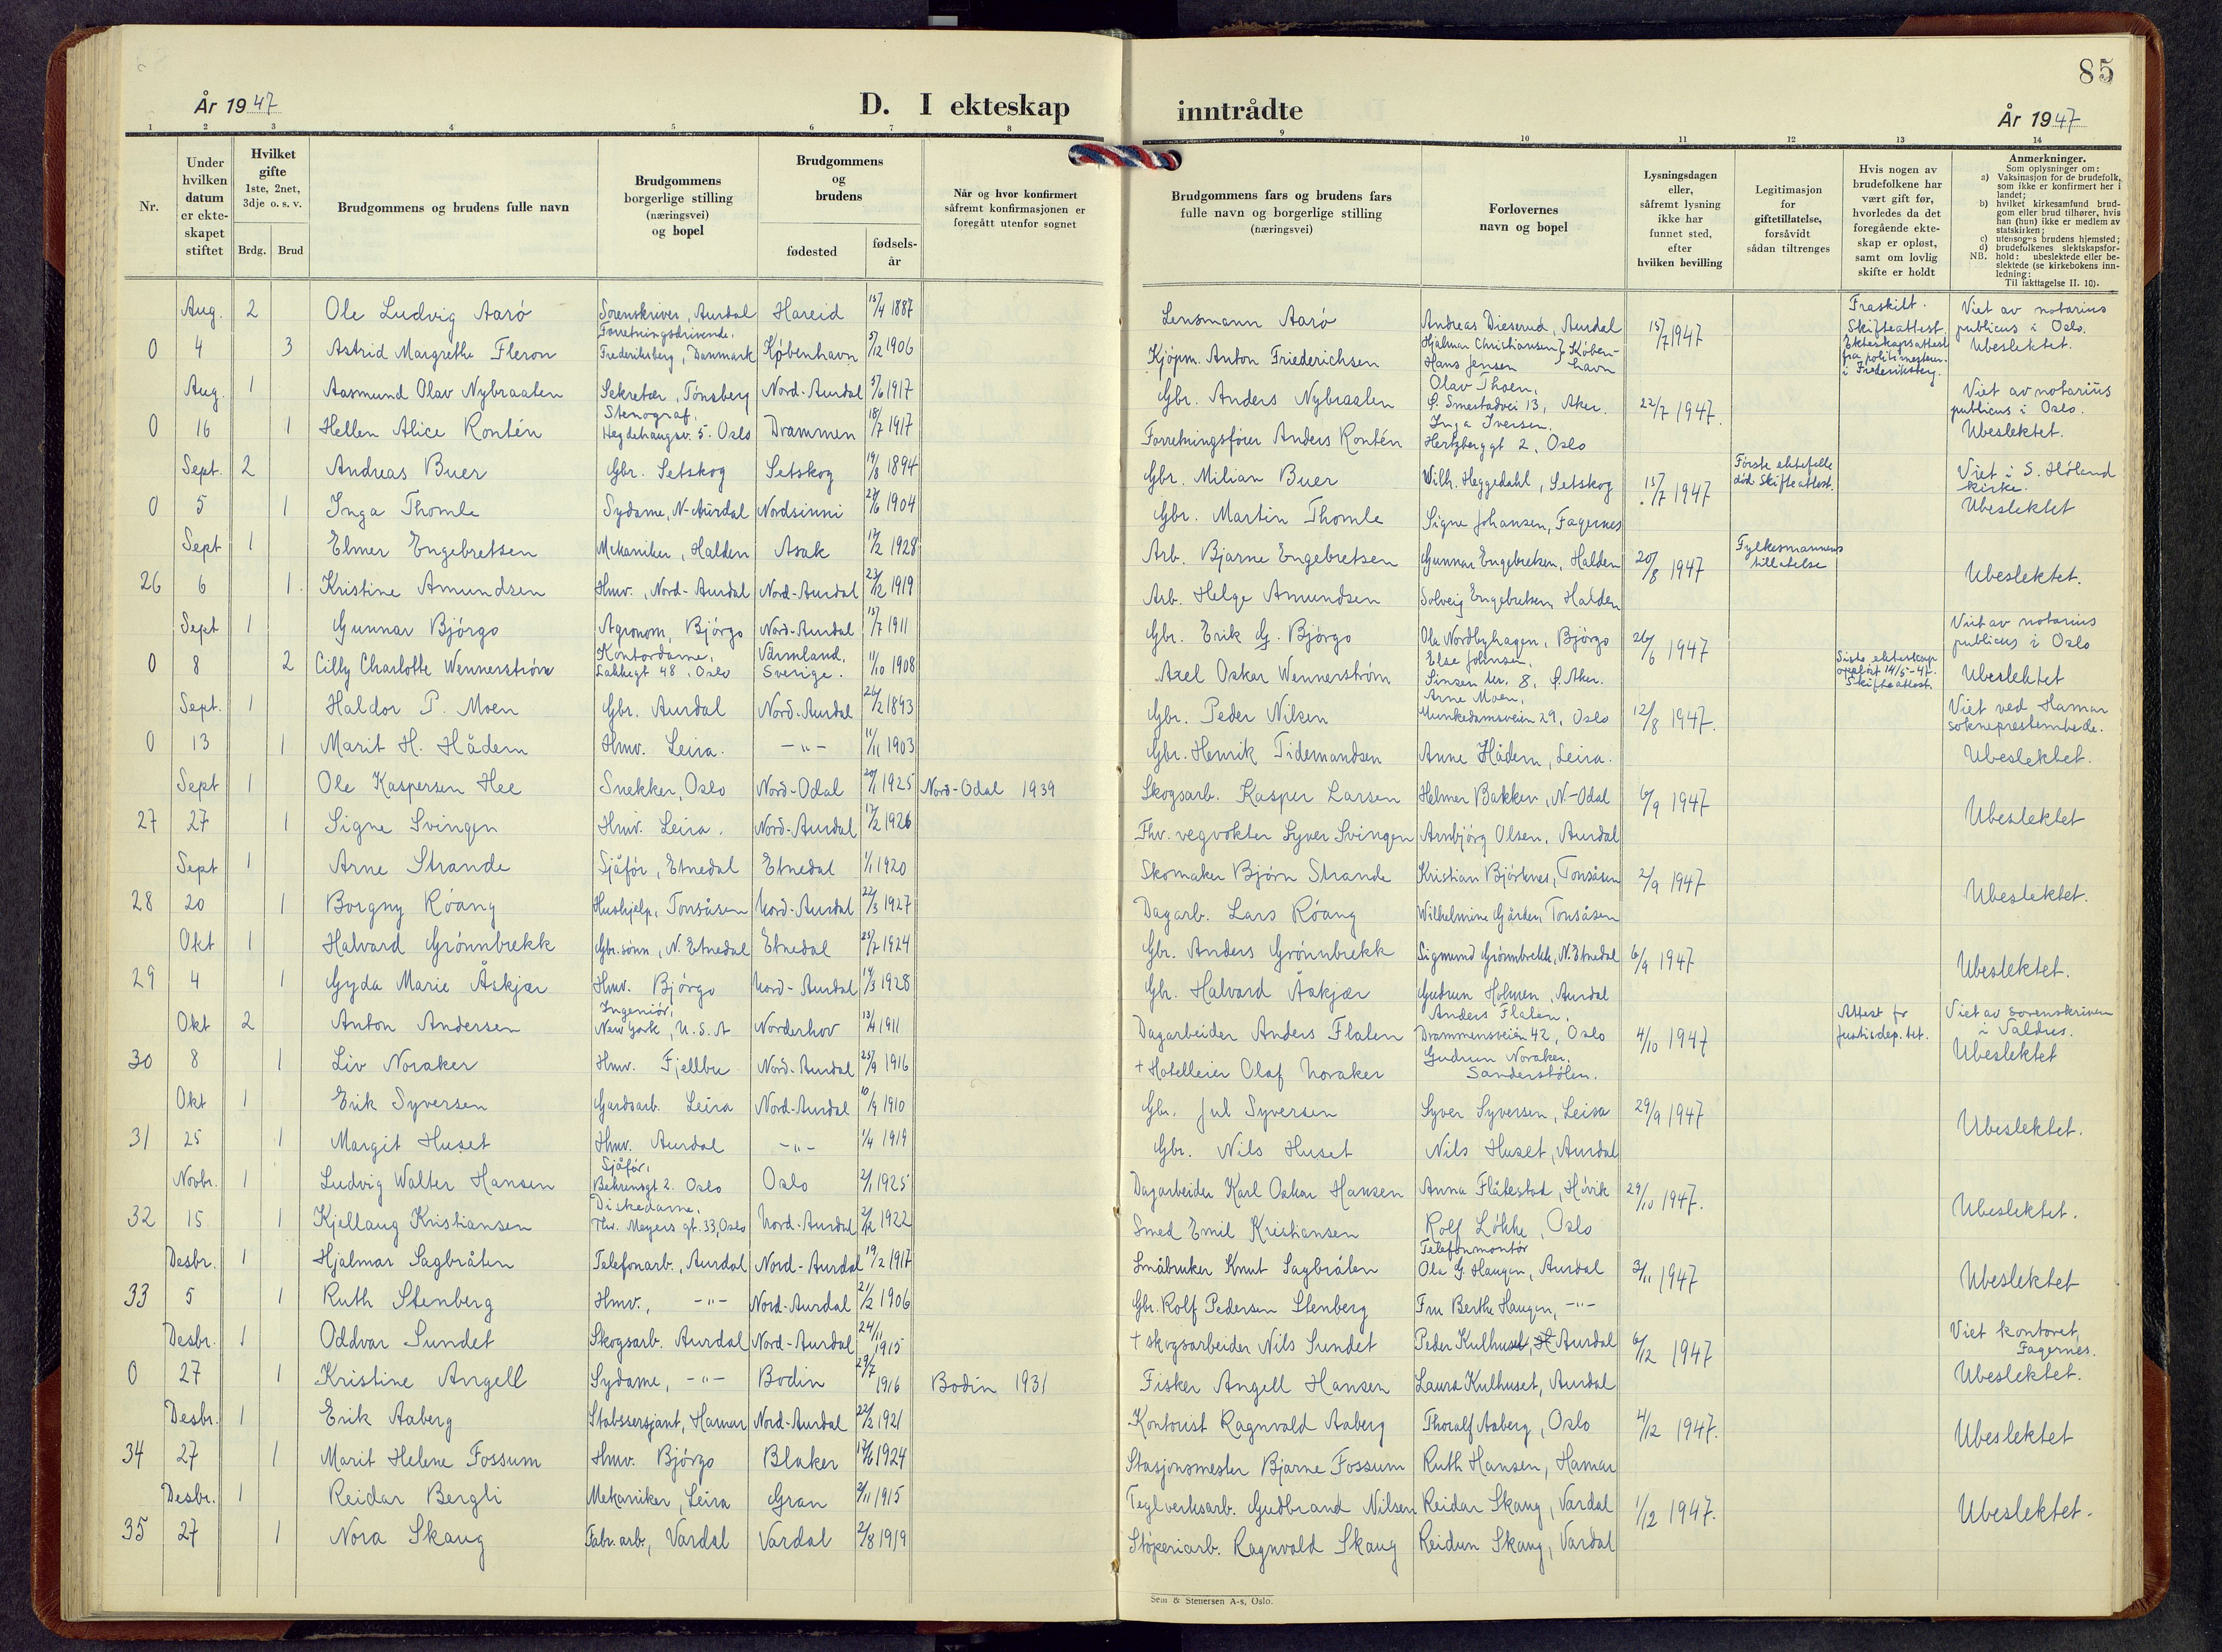 85
År 1947
D. I ekteskap inntrådte
År 1947
1 2 3 4 5 6 7 8 9 10 11 12 13 14
Nr.
Under hvilken datum er ekte-skapet stiftet
Hvilket gifte 1ste, 2net, 3dje o. s. v.
Brdg. Brud
Brudgommens og brudens fulle navn
Brudgommens borgerlige stilling (næringsvei) og bopel
Brudgommens og brudens
fødested
fødsels-år
Når og hvor konfirmert såfremt konfirmasjonen er foregått utenfor sognet
Brudgommens fars og brudens fars fulle navn og borgerlige stilling (næringsvei)
Forlovernes navn og bopel
Lysningsdagen eller, såfremt lysning ikke har funnet sted, efter hvilken bevilling
Legitimasjon for giftetillatelse, forsåvidt sådan tiltrenges
Hvis nogen av brudefolkene har vært gift før, hvorledes da det foregående ekte-skap er opløst, samt om lovlig skifte er holdt
Anmerkninger.
Som oplysninger om:
a) Vaksinasjon for de brudefolk, som ikke er konfirmert her i landet;
b) hvilket kirkesamfund brud-gom eller brud tilhører, hvis han (hun) ikke er medlem av statskirken;
c) utensogns brudens hjemsted;
d) brudefolkenes slektskapsfor-hold: ubeslektede eller be-slektede (se kirkebokens inn-ledning;
NB.
Til iakttagelse II. 10).
Aug. 2 Ole Ludvig Aarö Sorenskriver, Aurdal Hareid 15/4 1887 Lensmann Aarö Andreas Dieserud, Aurdal 15/7 1947 Fraskilt. Skifteattest. Viet av notarius publicus i Oslo.
0 4 3 Astrid Margrethe Fleron Forretningsdrivende. Frederiksberg, Danmark København 5/12 1906 Kjöpm. Anton Friederichsen Hjalmar Christiansen Hans Jensen } Köben-havn Ekteskapsattest fra politimesteren i Frederiksberg. Ubeslektet.
Aug. 1 Aasmund Olav Nybraaten Sekretær, Tönsberg Nord-Aurdal 5/6 1917 Gbr. Anders Nybraaten Olav Thoen, S. Smestadvei 13, Aker. 22/7 1947. Viet av notarius publicus i Oslo.
0 16 1 Hellen Alice Rontén Stenograf. Hegdehaugsv. 5. Oslo Drammen 18/7 1917 Forretningsförer Anders Rontén Inga Iversen. Hertzberggt 2, Oslo Ubeslektet.
Sept. 2 Andreas Buer Gbr. Setskog Setskog 19/8 1894 Gbr. Milian Buer Wilh. Heggedahl, Setskog 15/7 1947 Förste ektefelle död Skifteattest. Viet i S. Höland kirke.
0 5 1 Inga Thomle Sydame, N-Aurdal Nordsinni 24/6 1904 Gbr. Martin Thomle Signe Johansen, Fagernes Ubeslektet
Sept 1 Elmer Engebretsen Mekaniker, Halden Asak 17/2 1928 Arb. Bjarne Engebretsen Gunnar Engebretsen, Halden 20/8 1947 Fylkesmannens tillatelse
26 6 1 Kristine Amundsen Hmv., Nord-Aurdal Nord-Aurdal 23/12 1919 Arb. Helge Amundsen Solveig Engebretsen, Halden Ubeslektet.
Sept 1 Gunnar Björgo Agronom, Björgo Nord-Aurdal 15/7 1911 Gbr. Erik G. Björgo Ola Nordbyhagen, Björgo 26/6 1947 Viet av notarius publicus i Oslo
0 8 2 Cilly Charlotte Wennerström Kontordame, Lakkegt 48, Oslo Värmland, Sverige. 11/10 1908 Axel Oskar Wennerström Else Johnsen, Sinsen ter. 8, Ö. Aker. Siste ekteskap opplöst 14/5-47. Skifteattest. Ubeslektet
Sept. 1 Haldor P. Moen Gbr. Aurdal Nord-Aurdal 26/2 1893 Gbr. Peder Nilsen Arne Moen, Munkedamsveien 29, Oslo 12/8 1947. Viet ved Hamar sokneprestembede.
0 13 1 Marit H. Hådem Hmv. Leira. -"- 11/11 1903 Gbr. Henrik Tidemandsen Anne Hådem, Leira. Ubeslektet.
Sept 1 Ole Kaspersen Hee Snekker, Oslo Nord-Odal 20/1 1925 Nord-Odal 1939 Skogsarb. Kasper Larsen Helmer Bakken, N-Odal 6/9 1947
27 27 1 Signe Svingen Hmv. Leira. Nord-Aurdal 17/2 1926 Fhv. vegvokter Syver Svingen Arnbjörg Olsen, Aurdal Ubeslektet
Sept 1 Arne Strande Sjåför, Etnedal Etnedal 1/1 1920 Skomaker Björn Strande Kristian Björknes, Tonsåsen 2/9 1947
28 20 1 Borgny Röang Hushjelp, Tonsåsen Nord-Aurdal 22/3 1927 Dagarb. Lars Röang Wilhelmine Gården, Tonsåsen Ubeslektet.
Okt 1 Halvard Grönnbrekk Gbr.sönn, N. Etnedal Etnedal 25/7 1924 Gbr. Anders Grönnbrekk Sigmund Grönnbrekk, N. Etnedal 6/9 1947
29 4 1 Gyda Marie Åskjær Hmv. Björgo Nord-Aurdal 14/3 1928 Gbr. Halvard Åskjær Gudrun Holmen, Aurdal Ubeslektet.
Okt 2 Anton Andersen Ingeniör, New York, U.S.A Norderhov 13/4 1911 Dagarbeider Anders Flaten Anders Flaten, Drammensveien 42, Oslo 4/10 1947 Attest fr Justisdep.tet. Viet av sorenskriveren i Valdres.
30 8 1 Liv Noraker Hmv. Fjellbu Nord-Aurdal 25/9 1916 + Hotelleier Olaf Noraker Gudrun Noraker, Sanderstölen. Ubeslektet
Okt 1 Erik Syversen Gardsarb. Leira Nord-Aurdal 10/9 1910 Gbr. Jul Syversen Syver Syversen, Leira 29/9 1947
31 25 1 Margit Huset Hmv. Aurdal -"- 1/4 1919 Gbr. Nils Huset Nils Huset, Aurdal Ubeslektet.
Novbr. 1 Ludvig Walter Hansen Sjåför, Behrensgt 2. Oslo Oslo 2/1 1925 Dagarbeider Karl Oskar Hansen Anna Flåtestad, Hövik 29/10 1947.
32 15 1 Kjellaug Kristiansen Diskedame, Thv. Meyers gt. 33, Oslo Nord-Aurdal 2/12 1922 Smed Emil Kristiansen Rolf Lökke, Oslo Ubeslektet.
Desbr. 1 Hjalmar Sagbråten Telefonarb., Aurdal Nord-Aurdal 19/2 1917 Småbruker Knut Sagbråten Telefonmontör Ola G. Haugen, Aurdal 3/11 1947
33 5 1 Ruth Stenberg Hmv., -"- Nord-Aurdal 21/2 1906 Gbr. Rolf Pedersen Stenberg Fru Berthe Haugen, -"- Ubeslektet
Desbr. 1 Oddvar Sundet Skogsarb. Aurdal Nord-Aurdal 24/11 1915 + skogsarbeider Nils Sundet Peder Kulhuset, Aurdal 6/12 1947 Viet kontoret, Fagernes.
0 27 1 Kristine Angell Sydame, -"- Bodin 29/7 1916 Bodin 1931 Fisker Angell Hansen Laura Kulhuset, Aurdal Ubeslektet.
Desbr. 1 Erik Aaberg Stabssersjant, Hamar Nord-Aurdal 22/2 1921 Kontorist Ragnvald Aaberg Thoralf Aaberg, Oslo 4/12 1947.
34 27 1 Marit Helene Fossum Hmv. Björgo Blaker 17/6 1924 Stasjonsmester Bjarne Fossum Ruth Hansen, Hamar Ubeslektet
Desbr. 1 Reidar Bergli Mekaniker, Leira Gran 3/11 1915 Teglverksarb. Gudbrand Nilsen Reidar Skaug, Vardal 1/12 1947.
35 27 1 Nora Skaug Fabr.arb., Vardal Vardal 2/8 1919 Stöperiarb. Ragnvald Skaug Reidun Skaug, Vardal Ubeslektet.
Sem & Stenersen A-s, Oslo.